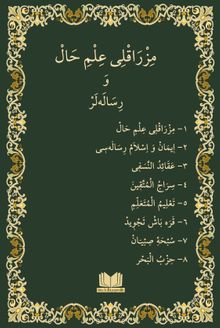 مِزْرَاقْلِى عِلْمِ حَالْ
وَ
رِسَالَه‌لَرْ
١- مِزْرَاقْلِى عِلْمِ حَالْ
٢- اِيمَانْ وَ اِسْلَامْ رِسَالَه‌سِى
٣- عَقَائِدُ النَّسَفِى
٤- سِرَاجُ الْمُتَّقِينَ
٥- تَعْلِيمُ الْمُتَعَلِّمِ
٦- قَرَه بَاشْ تَجْوِيدْ
٧- سُبْحَةِ صِبْيَانْ
٨- حِزْبُ الْبَحْرِ